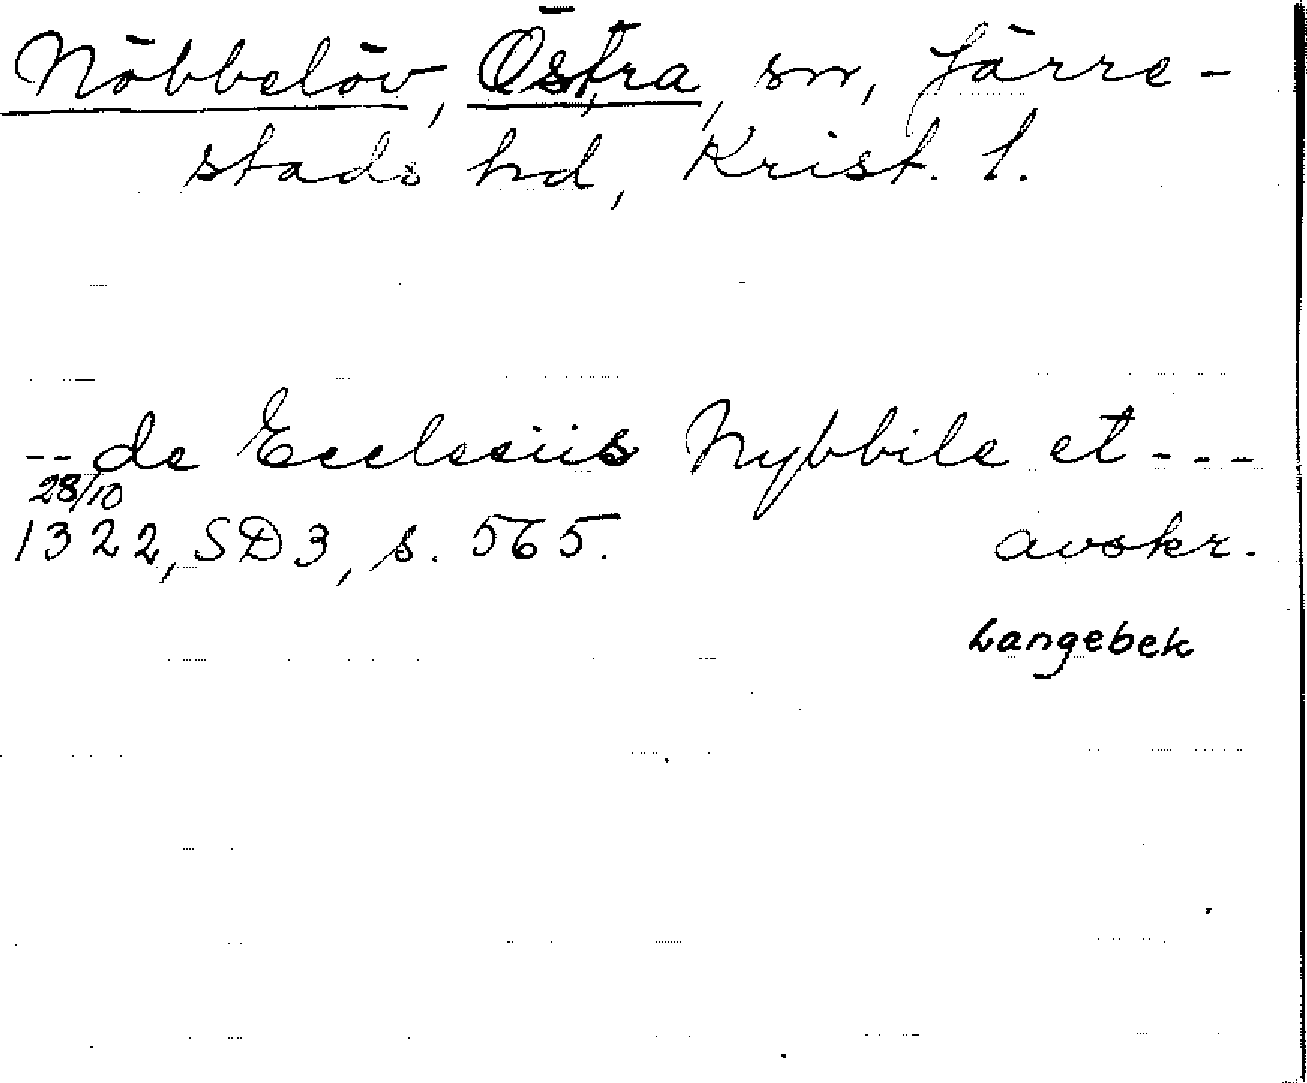 Nöbbelöv, Östra, sn, Järre-
stads hd, Krist. l.
-- de Ecclesiis Nybbile et ---
28/10
1322, SD3, s. 565. avskr.
Langebek